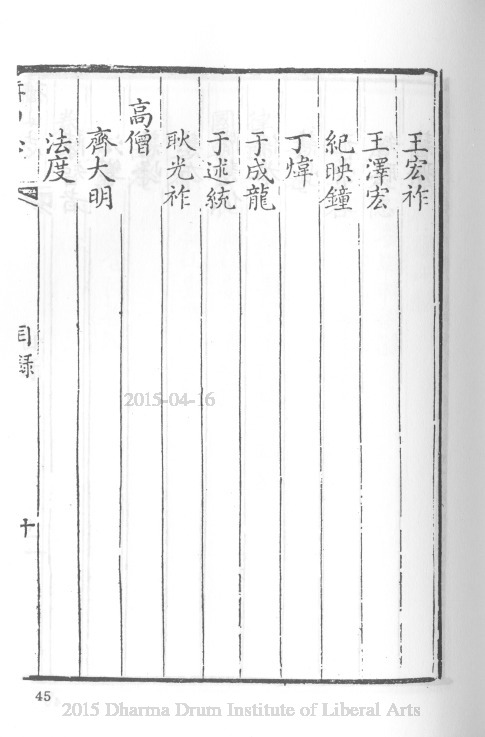 王宏祚
王澤宏
紀映鐘
丁煒
于成龍
于述統
耿光祚
高僧
齊大明
法度
目錄
十
2015-04-16
45
2015 Dharma Drum Institute of Liberal Arts